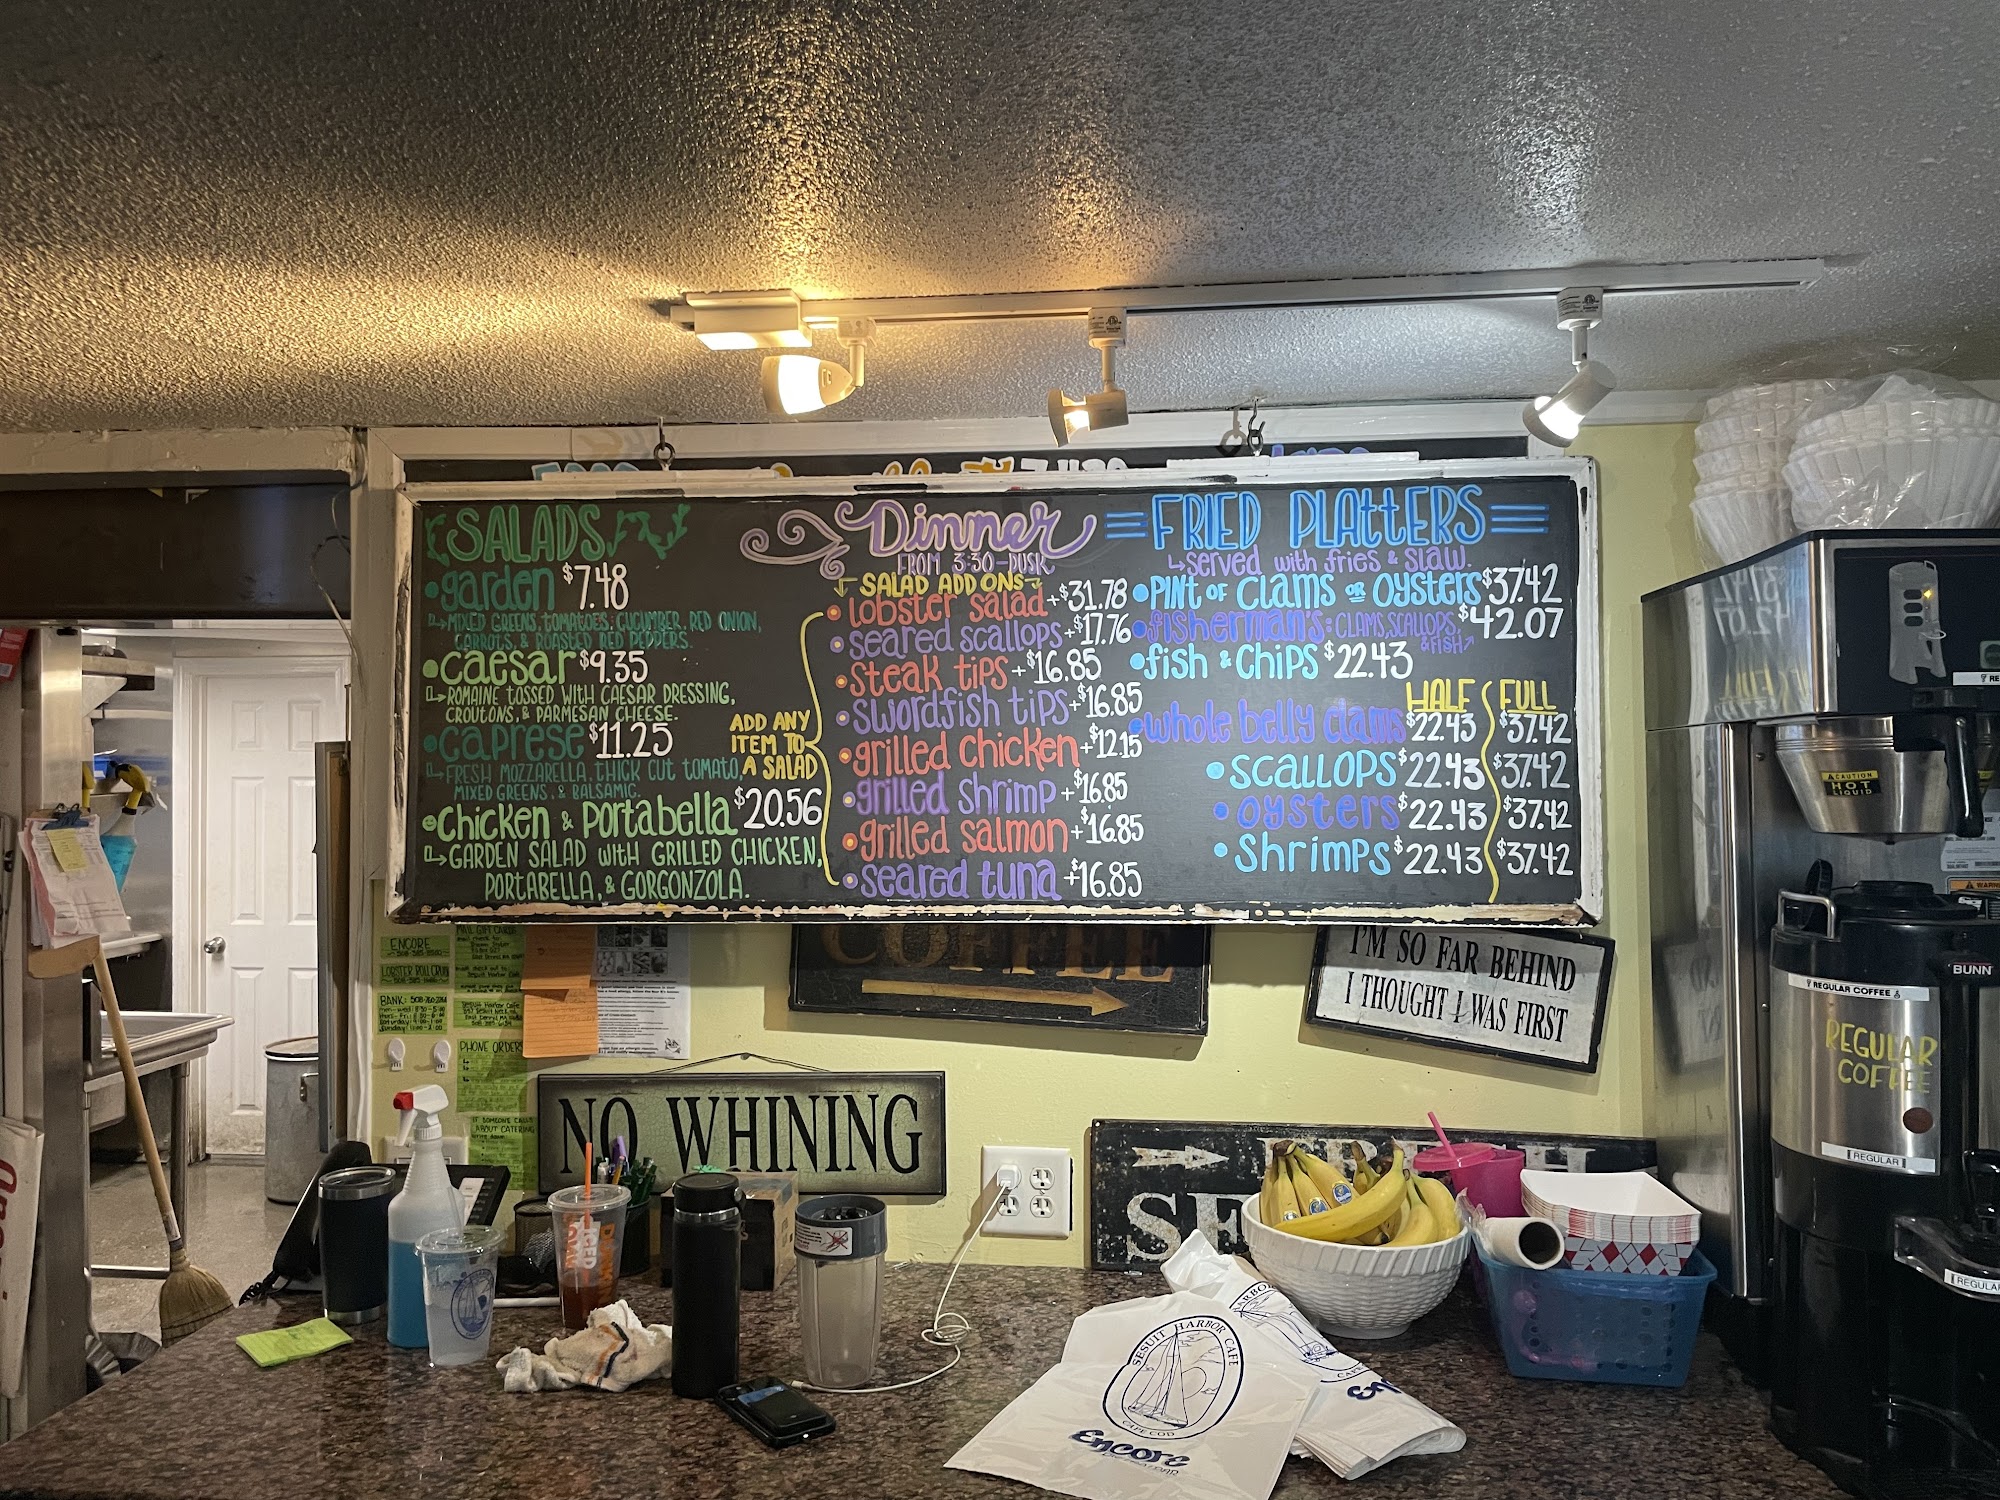 SALADS
• garden $7.48
MIXED GREENS, TOMATOES, CUCUMBER, RED ONION,
CARROTS, & ROASTED RED PEPPERS.
• caesar $9.35
ROMAINE TOSSED WITH CAESAR DRESSING,
CROUTONS, & PARMESAN CHEESE.
• caprese $11.25
FRESH MOZZARELLA, THICK CUT TOMATO,
MIXED GREENS, & BALSAMIC.
• chicken & portabella $20.56
GARDEN SALAD WITH GRILLED CHICKEN,
PORTABELLA, & GORGONZOLA.
ADD ANY
ITEM TO
A SALAD
Dinner
FROM 3:30-DUSK
SALAD ADD ONS
lobster salad +$31.78
seared scallops +$17.76
steak tips +$16.85
swordfish tips +$16.85
grilled chicken +$12.15
grilled shrimp +$16.85
grilled salmon +$16.85
seared tuna +$16.85
FRIED PLATTERS
served with fries & slaw.
• PINT OF CLAMS OR OYSTERS $37.42
• fisherman's: CLAMS, SCALLOPS, & FISH $42.07
• fish & chips $22.43
HALF FULL
• whole belly clams $22.43 $37.42
• SCALLOPS $22.43 $37.42
• oysters $22.43 $37.42
• Shrimps $22.43 $37.42
COFFEE
I'M SO FAR BEHIND
I THOUGHT I WAS FIRST
NO WHINING
ENCORE
BANK: 508-760-
PHONE ORDERS
IF SOMEONE CALLS
ABOUT CATERING
CAUTION
HOT
LIQUID
BUNN
REGULAR COFFEE
REGULAR
COFFEE
REGULAR
REGULAR
SESUIT HARBOR CAFE
CAPE COD
Encore